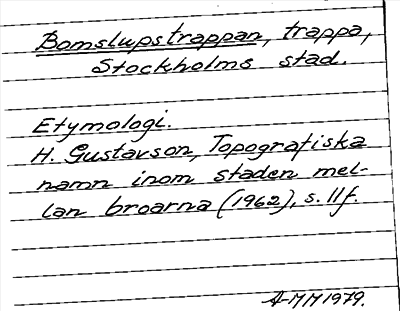 Bomslupstrappan, trappa,
Stockholms stad.
Etymologi.
H. Gustavson, Topografiska
namn inom staden mel-
lan broarna (1962), s. 11f.
A-MM 1979.